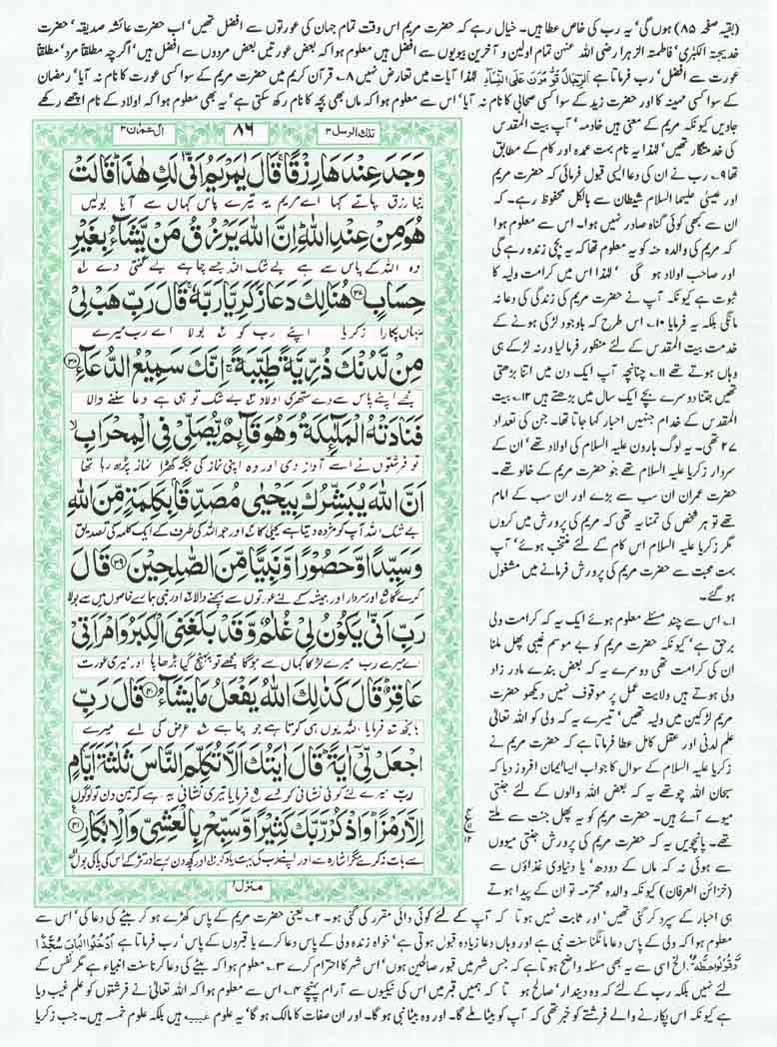 (بقیہ صفحہ ۸۵) ہوں گی' یہ رب کی خاص عطا ہیں۔ خیال رہے کہ حضرت مریم اس وقت تمام جہان کی عورتوں سے افضل تھیں' اب حضرت عائشہ صدیقہ' حضرت
خدیجتہ الکبریٰ' فاطمتہ الزہرا رضی اللہ عنہن تمام اولین و آخرین بیویوں سے افضل ہیں معلوم ہوا کہ بعض عورتیں بعض مردوں سے افضل ہیں' اگرچہ مطلقاً مرد' مطلقاً
عورت سے افضل' رب فرماتا ہے الرِّجَالُ قَوّٰمُوْنَ عَلَی النِّسَآءِ لہٰذا آیات میں تعارض نہیں ۸۔ قرآن کریم میں حضرت مریم کے سوا کسی عورت کا نام نہ آیا' رمضان
کے سوا کسی مہینہ کا اور حضرت زید کے سوا کسی صحابی کا نام نہ آیا' اس سے معلوم ہوا کہ ماں بھی بچہ کا نام رکھ سکتی ہے' یہ بھی معلوم ہوا کہ اولاد کے نام اچھے رکھے
جاویں کیونکہ مریم کے معنی ہیں خادمہ' آپ بیت المقدس
کی خدمتگار تھیں' لہٰذا یہ نام بہت عمدہ اور کام کے مطابق
تھا ۹۔ رب نے ان کی دعا ایسی قبول فرمائی کہ حضرت مریم
اور عیسیٰ علیہما السلام شیطان سے بالکل محفوظ رہے۔ کہ
ان سے کبھی کوئی گناہ صادر نہیں ہوا۔ اس سے معلوم ہوا
کہ مریم کی والدہ حنہ کو یہ معلوم تھا کہ یہ بچی زندہ رہے گی
اور صاحب اولاد ہو گی' لہٰذا اس میں کرامت ولیہ کا
ثبوت ہے کیونکہ آپ نے حضرت مریم کی زندگی کی دعا نہ
مانگی بلکہ یہ فرمایا ۱۰۔ اس طرح کہ باوجود لڑکی ہونے کے
خدمت بیت المقدس کے لئے منظور فرمالیا ورنہ لڑکے ہی
وہاں ہوتے تھے ۱۱۔ چنانچہ آپ ایک دن میں اتنا بڑھتی
تھیں جتنا دوسرے بچے ایک سال میں بڑھتے ہیں ۱۲۔ بیت
المقدس کے خدام جنہیں احبار کہا جاتا تھا۔ جن کی تعداد
۲۷ تھی۔ یہ لوگ ہارون علیہ السلام کی اولاد تھے' ان کے
سردار زکریا علیہ السلام تھے جو حضرت مریم کے خالو تھے۔
حضرت عمران ان سب سے بڑے اور ان سب کے امام
تھے تو ہر شخص کی تمنا یہ تھی کہ مریم کی پرورش میں کروں
مگر زکریا علیہ السلام اس کام کے لئے منتخب ہوئے' آپ
بہت محبت سے حضرت مریم کی پرورش فرمانے میں مشغول
ہو گئے۔
۱۔ اس سے چند مسئلے معلوم ہوئے ایک یہ کہ کرامت ولی
برحق ہے کیونکہ حضرت مریم کو بے موسم غیبی پھل ملنا
ان کی کرامت تھی دوسرے یہ کہ بعض بندے مادر زاد
ولی ہوتے ہیں ولایت عمل پر موقوف نہیں دیکھو حضرت
مریم لڑکپن میں ولیہ تھیں' تیسرے یہ کہ ولی کو اللہ تعالٰی
علم لدنی اور عقل کامل عطا فرماتا ہے کہ حضرت مریم نے
زکریا علیہ السلام کے سوال کا جواب ایسا ایمان افروز دیا کہ
سبحان اللہ چوتھے یہ کہ بعض اللہ والوں کے لئے جنتی
میوے آئے ہیں۔ حضرت مریم کو یہ پھل جنت سے ملتے
تھے۔ پانچویں یہ کہ حضرت مریم کی پرورش جنتی میووں
سے ہوئی نہ کہ ماں کے دودھ' یا دنیاوی غذاؤں سے
(خزائن العرفان) کیونکہ والدہ محترمہ تو ان کے پیدا ہوتے
تلک الرسل ۳ ۸۶ اٰل عمران ۳
وَجَدَ عِنْدَهَا رِزْقًا ۚ قَالَ يٰمَرْيَمُ اَنّٰى لَكِ هٰذَا ؕ قَالَتْ
نیا رزق پاتے کہا اے مریم یہ تیرے پاس کہاں سے آیا بولیں
هُوَ مِنْ عِنْدِ اللّٰهِ ؕ اِنَّ اللّٰهَ يَرْزُقُ مَنْ يَّشَآءُ بِغَيْرِ
وہ اللہ کے پاس سے ہے بے شک اللہ جسے چاہے بے گنتی دے
حِسَابٍ ﴿۳۷﴾ هُنَالِكَ دَعَا زَكَرِيَّا رَبَّهٗ ۚ قَالَ رَبِّ هَبْ لِيْ
یہاں پکارا زکریا اپنے رب کو بولا اے رب میرے
مِنْ لَّدُنْكَ ذُرِّيَّةً طَيِّبَةً ۚ اِنَّكَ سَمِيْعُ الدُّعَآءِ ﴿۳۸﴾
مجھے اپنے پاس سے دے ستھری اولاد بے شک تو ہی ہے دعا سننے والا
فَنَادَتْهُ الْمَلٰٓئِكَةُ وَهُوَ قَآئِمٌ يُّصَلِّيْ فِي الْمِحْرَابِ ۙ
تو فرشتوں نے اسے آواز دی اور وہ اپنی نماز کی جگہ کھڑا نماز پڑھ رہا تھا
اَنَّ اللّٰهَ يُبَشِّرُكَ بِيَحْيٰى مُصَدِّقًۢا بِكَلِمَةٍ مِّنَ اللّٰهِ
بے شک اللہ آپ کو مژدہ دیتا ہے یحیٰی کا جو اللہ کی طرف کے ایک کلمہ کی تصدیق
وَسَيِّدًا وَّحَصُوْرًا وَّنَبِيًّا مِّنَ الصّٰلِحِيْنَ ﴿۳۹﴾ قَالَ
کرے گا اور سردار اور ہمیشہ کے لئے عورتوں سے بچنے والا اور نبی ہمارے خاصوں میں سے بولا
رَبِّ اَنّٰى يَكُوْنُ لِيْ غُلٰمٌ وَّقَدْ بَلَغَنِيَ الْكِبَرُ وَامْرَاَتِيْ
اے میرے رب میرے لڑکا کہاں سے ہوگا مجھے تو پہنچ گیا بڑھاپا اور میری عورت
عَاقِرٌ ؕ قَالَ كَذٰلِكَ اللّٰهُ يَفْعَلُ مَا يَشَآءُ ﴿۴۰﴾ قَالَ رَبِّ
بانجھ فرمایا اللہ یوں ہی کرتا ہے جو چاہے عرض کی اے میرے
اجْعَلْ لِّيْٓ اٰيَةً ؕ قَالَ اٰيَتُكَ اَلَّا تُكَلِّمَ النَّاسَ ثَلٰثَةَ اَيَّامٍ
رب میرے لئے کوئی نشانی کر دے فرمایا تیری نشانی یہ ہے کہ تین دن تو لوگوں
اِلَّا رَمْزًا ؕ وَاذْكُرْ رَّبَّكَ كَثِيْرًا وَّسَبِّحْ بِالْعَشِيِّ وَالْاِبْكَارِ ﴿۴۱﴾
سے بات نہ کرے مگر اشارہ سے اور اپنے رب کی بہت یاد کر اور کچھ دن رہے اور تڑکے اس کی پاکی بول
منزل ۱
ہی احبار کے سپرد کر گئی تھیں' اور ثابت نہیں ہوتا کہ آپ کے لئے کوئی دائی مقرر کی گئی ہو۔ ۲۔ یعنی حضرت مریم کے پاس کھڑے ہو کر بیٹے کی دعا کی' اس سے
معلوم ہوا کہ ولی کے پاس دعا مانگنا سنت نبی ہے اور وہاں دعا زیادہ قبول ہوتی ہے' خواہ زندہ ولی کے پاس دعا کرے یا قبروں کے پاس' رب فرماتا ہے اُدْخُلُوا الْبَابَ سُجَّدًا
وَّقُوْلُوْا حِطَّةٌ الخ اسی سے یہ بھی مسئلہ واضح ہوتا ہے کہ جس شہر میں قبور صالحین ہوں' اس شہر کا احترام کرے ۳۔ معلوم ہوا کہ بیٹے کی دعا کرنا سنت انبیاء ہے مگر نفس کے
لئے نہیں بلکہ رب کے لئے کہ وہ دیندار' صالح ہو تا کہ ہمیں قبر میں اس کی نیکیوں سے آرام پہنچے ۴۔ اس سے معلوم ہوا کہ اللہ تعالٰی نے فرشتوں کو علم غیب دیا
ہے کیونکہ اس پکارنے والے فرشتے کو خبر تھی کہ آپ کو بیٹا ملے گا۔ اور وہ بیٹا نبی ہو گا۔ اور ان صفات کا مالک ہو گا' یہ علوم غیبیہ ہیں بلکہ علوم خمسہ ہیں۔ جب زکریا